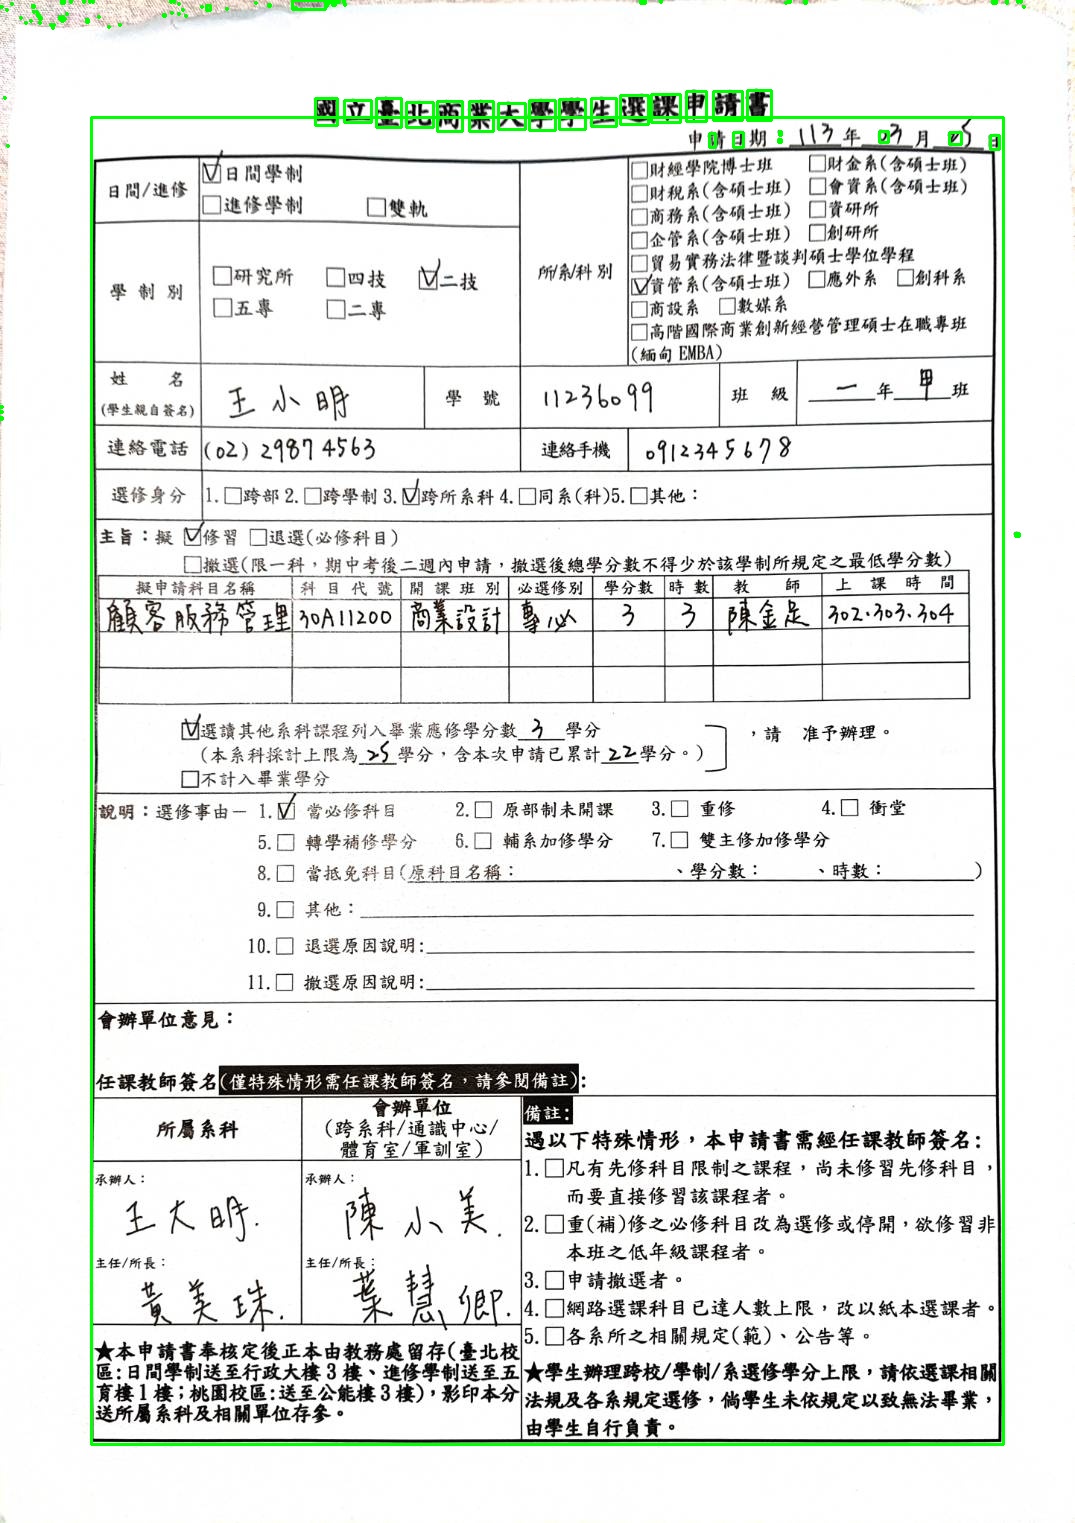 國立臺北商業大學學生選課申請書
申請日期：113年03月25日
日間/進修
☑日間學制
□進修學制 □雙軌
學制別
□研究所 □四技 ☑二技
□五專 □二專
所/系/科別
□財經學院博士班 □財金系(含碩士班)
□財稅系(含碩士班) □會資系(含碩士班)
□商務系(含碩士班) □資研所
□企管系(含碩士班) □創研所
□貿易實務法律暨談判碩士學位學程
☑資管系(含碩士班) □應外系 □創科系
□商設系 □數媒系
□高階國際商業創新經營管理碩士在職專班
(緬甸EMBA)
姓名
(學生親自簽名)
王小明
學號
11236099
班級
一年甲班
連絡電話
(02) 2987 4563
連絡手機
0912345678
選修身分
1.□跨部 2.□跨學制 3.☑跨所系科 4.□同系(科)5.□其他：
主旨：擬 ☑修習 □退選(必修科目)
□撤選(限一科，期中考後二週內申請，撤選後總學分數不得少於該學制所規定之最低學分數)
擬申請科目名稱 科目代號 開課班別 必選修別 學分數 時數 教師 上課時間
顧客服務管理 30A11200 商業設計 專必 3 3 陳金足 302.303.304
☑選讀其他系科課程列入畢業應修學分數3學分
(本系科採計上限為25學分，含本次申請已累計22學分。)
□不計入畢業學分
，請 准予辦理。
說明：選修事由－ 1.☑ 當必修科目 2.□ 原部制未開課 3.□ 重修 4.□ 衝堂
5.□ 轉學補修學分 6.□ 輔系加修學分 7.□ 雙主修加修學分
8.□ 當抵免科目(原科目名稱： 、學分數： 、時數： )
9.□ 其他：
10.□ 退選原因說明:
11.□ 撤選原因說明:
會辦單位意見：
任課教師簽名(僅特殊情形需任課教師簽名，請參閱備註):
所屬系科
會辦單位
(跨系科/通識中心/
體育室/軍訓室)
承辦人：
王大明.
承辦人：
陳小美.
主任/所長：
黃美珠.
主任/所長：
葉慧卿.
★本申請書奉核定後正本由教務處留存(臺北校
區:日間學制送至行政大樓3樓、進修學制送至五
育樓1樓；桃園校區:送至公能樓3樓)，影印本分
送所屬系科及相關單位存參。
備註:
遇以下特殊情形，本申請書需經任課教師簽名:
1.□凡有先修科目限制之課程，尚未修習先修科目，
而要直接修習該課程者。
2.□重(補)修之必修科目改為選修或停開，欲修習非
本班之低年級課程者。
3.□申請撤選者。
4.□網路選課科目已達人數上限，改以紙本選課者。
5.□各系所之相關規定(範)、公告等。
★學生辦理跨校/學制/系選修學分上限，請依選課相關
法規及各系規定選修，倘學生未依規定以致無法畢業，
由學生自行負責。